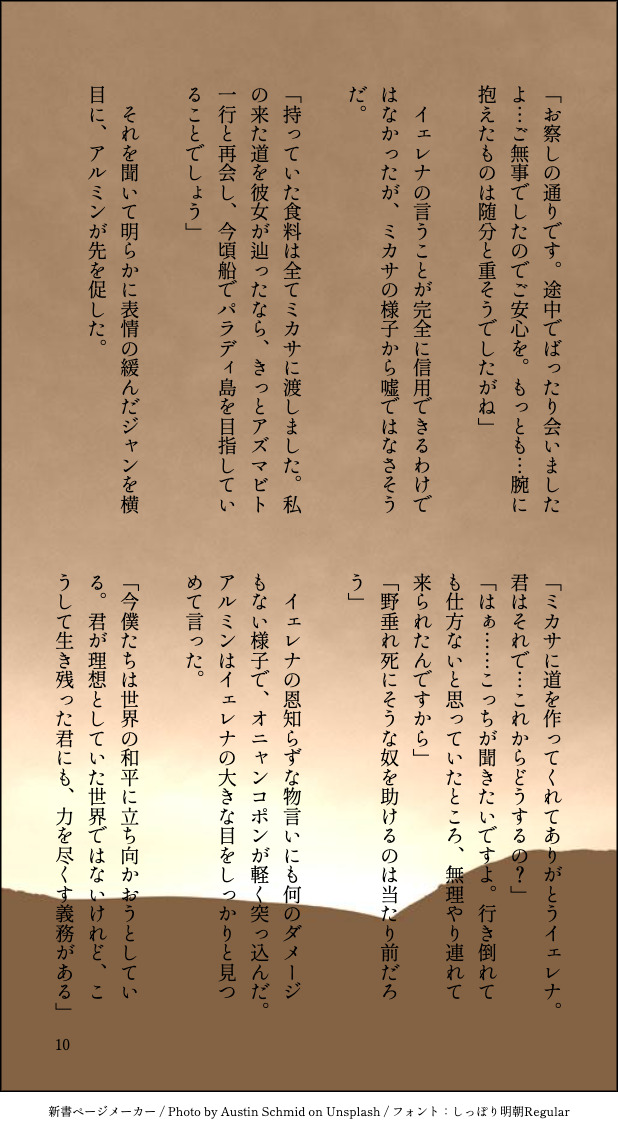 「お察しの通りです。途中でばったり会いました
よ…ご無事でしたのでご安心を。もっとも…腕に
抱えたものは随分と重そうでしたがね」
イェレナの言うことが完全に信用できるわけで
はなかったが、ミカサの様子から嘘ではなさそう
だ。
「持っていた食料は全てミカサに渡しました。私
の来た道を彼女が辿ったなら、きっとアズマビト
一行と再会し、今頃船でパラディ島を目指してい
ることでしょう」
それを聞いて明らかに表情の緩んだジャンを横
目に、アルミンが先を促した。
「ミカサに道を作ってくれてありがとうイェレナ。
君はそれで…これからどうするの？」
「はぁ……こっちが聞きたいですよ。行き倒れて
も仕方ないと思っていたところ、無理やり連れて
来られたんですから」
「野垂れ死にそうな奴を助けるのは当たり前だろ
う」
イェレナの恩知らずな物言いにも何のダメージ
もない様子で、オニャンコポンが軽く突っ込んだ。
アルミンはイェレナの大きな目をしっかりと見つ
めて言った。
「今僕たちは世界の和平に立ち向かおうとしてい
る。君が理想としていた世界ではないけれど、こ
うして生き残った君にも、力を尽くす義務がある」
10
新書ページメーカー / Photo by Austin Schmid on Unsplash / フォント：しっぽり明朝Regular